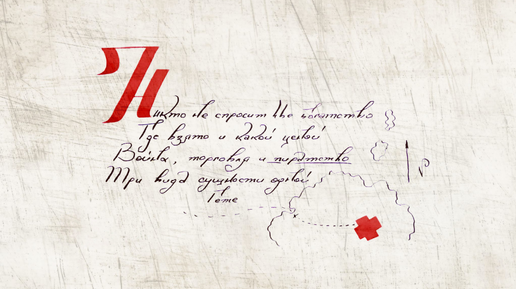 Никто не спросит чье богатство
Где взято и какой ценой
Война, торговля и пиратство
Три вида сущности одной
Гете